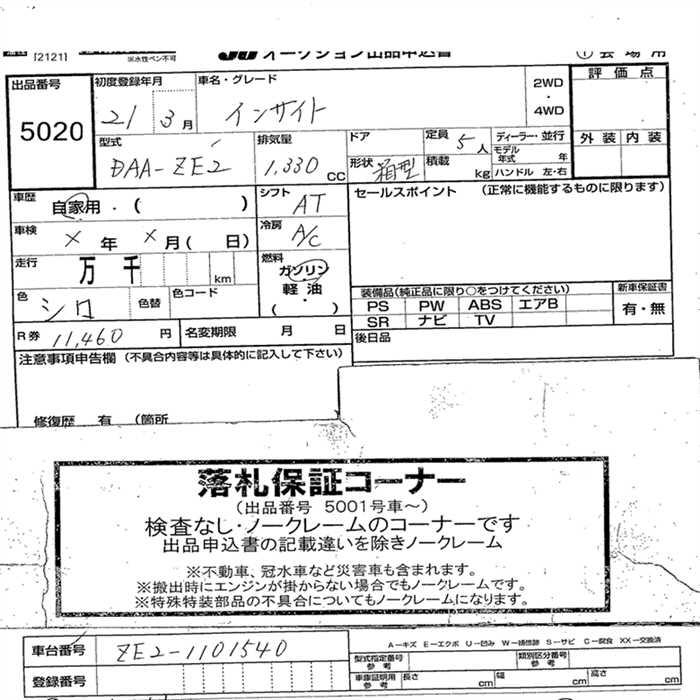 [2121]
※水性ペン不可
JU オークション出品申込書
① 会場用
出品番号 5020
初度登録年月 21 3月
車名・グレード インサイト
2WD・4WD
評価点
外装 内装
型式 DAA-ZE2
排気量 1,330 CC
ドア
形状 箱型
定員 5人
積載 kg
ディーラー・並行
モデル年式 年
ハンドル 左・右
車歴 自家用・( )
シフト AT
セールスポイント (正常に機能するものに限ります)
車検 X年 X月( 日)
冷房 A/C
走行 万 千 km
燃料 ガソリン・軽油・( )
色 シロ
色替
色コード
装備品(純正品に限り○をつけてください)
PS PW ABS エアB
SR ナビ TV
新車保証書 有・無
R券 11,460円
名変期限 月 日
後日品
注意事項申告欄 (不具合内容等は具体的に記入して下さい)
修復歴 有 (箇所
落札保証コーナー
(出品番号 5001号車〜)
検査なし・ノークレームのコーナーです
出品申込書の記載違いを除きノークレーム
※不動車、冠水車など災害車も含まれます。
※搬出時にエンジンが掛からない場合でもノークレームです。
※特殊特装部品の不具合についてもノークレームになります。
車台番号 ZE2-1101540
A－キズ E－エクボ U－凹み W－補修跡 S－サビ C－腐食 XX－交換済
型式指定番号 参考
類別区分番号 参考
登録番号
車庫証明用 参考 長さ cm 幅 cm 高さ cm